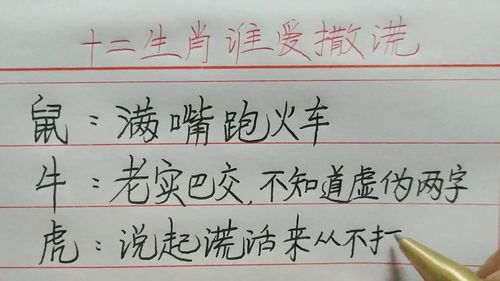 十二生肖谁爱撒谎
鼠：满嘴跑火车
牛：老实巴交,不知道虚伪两字
虎：说起谎话来从不